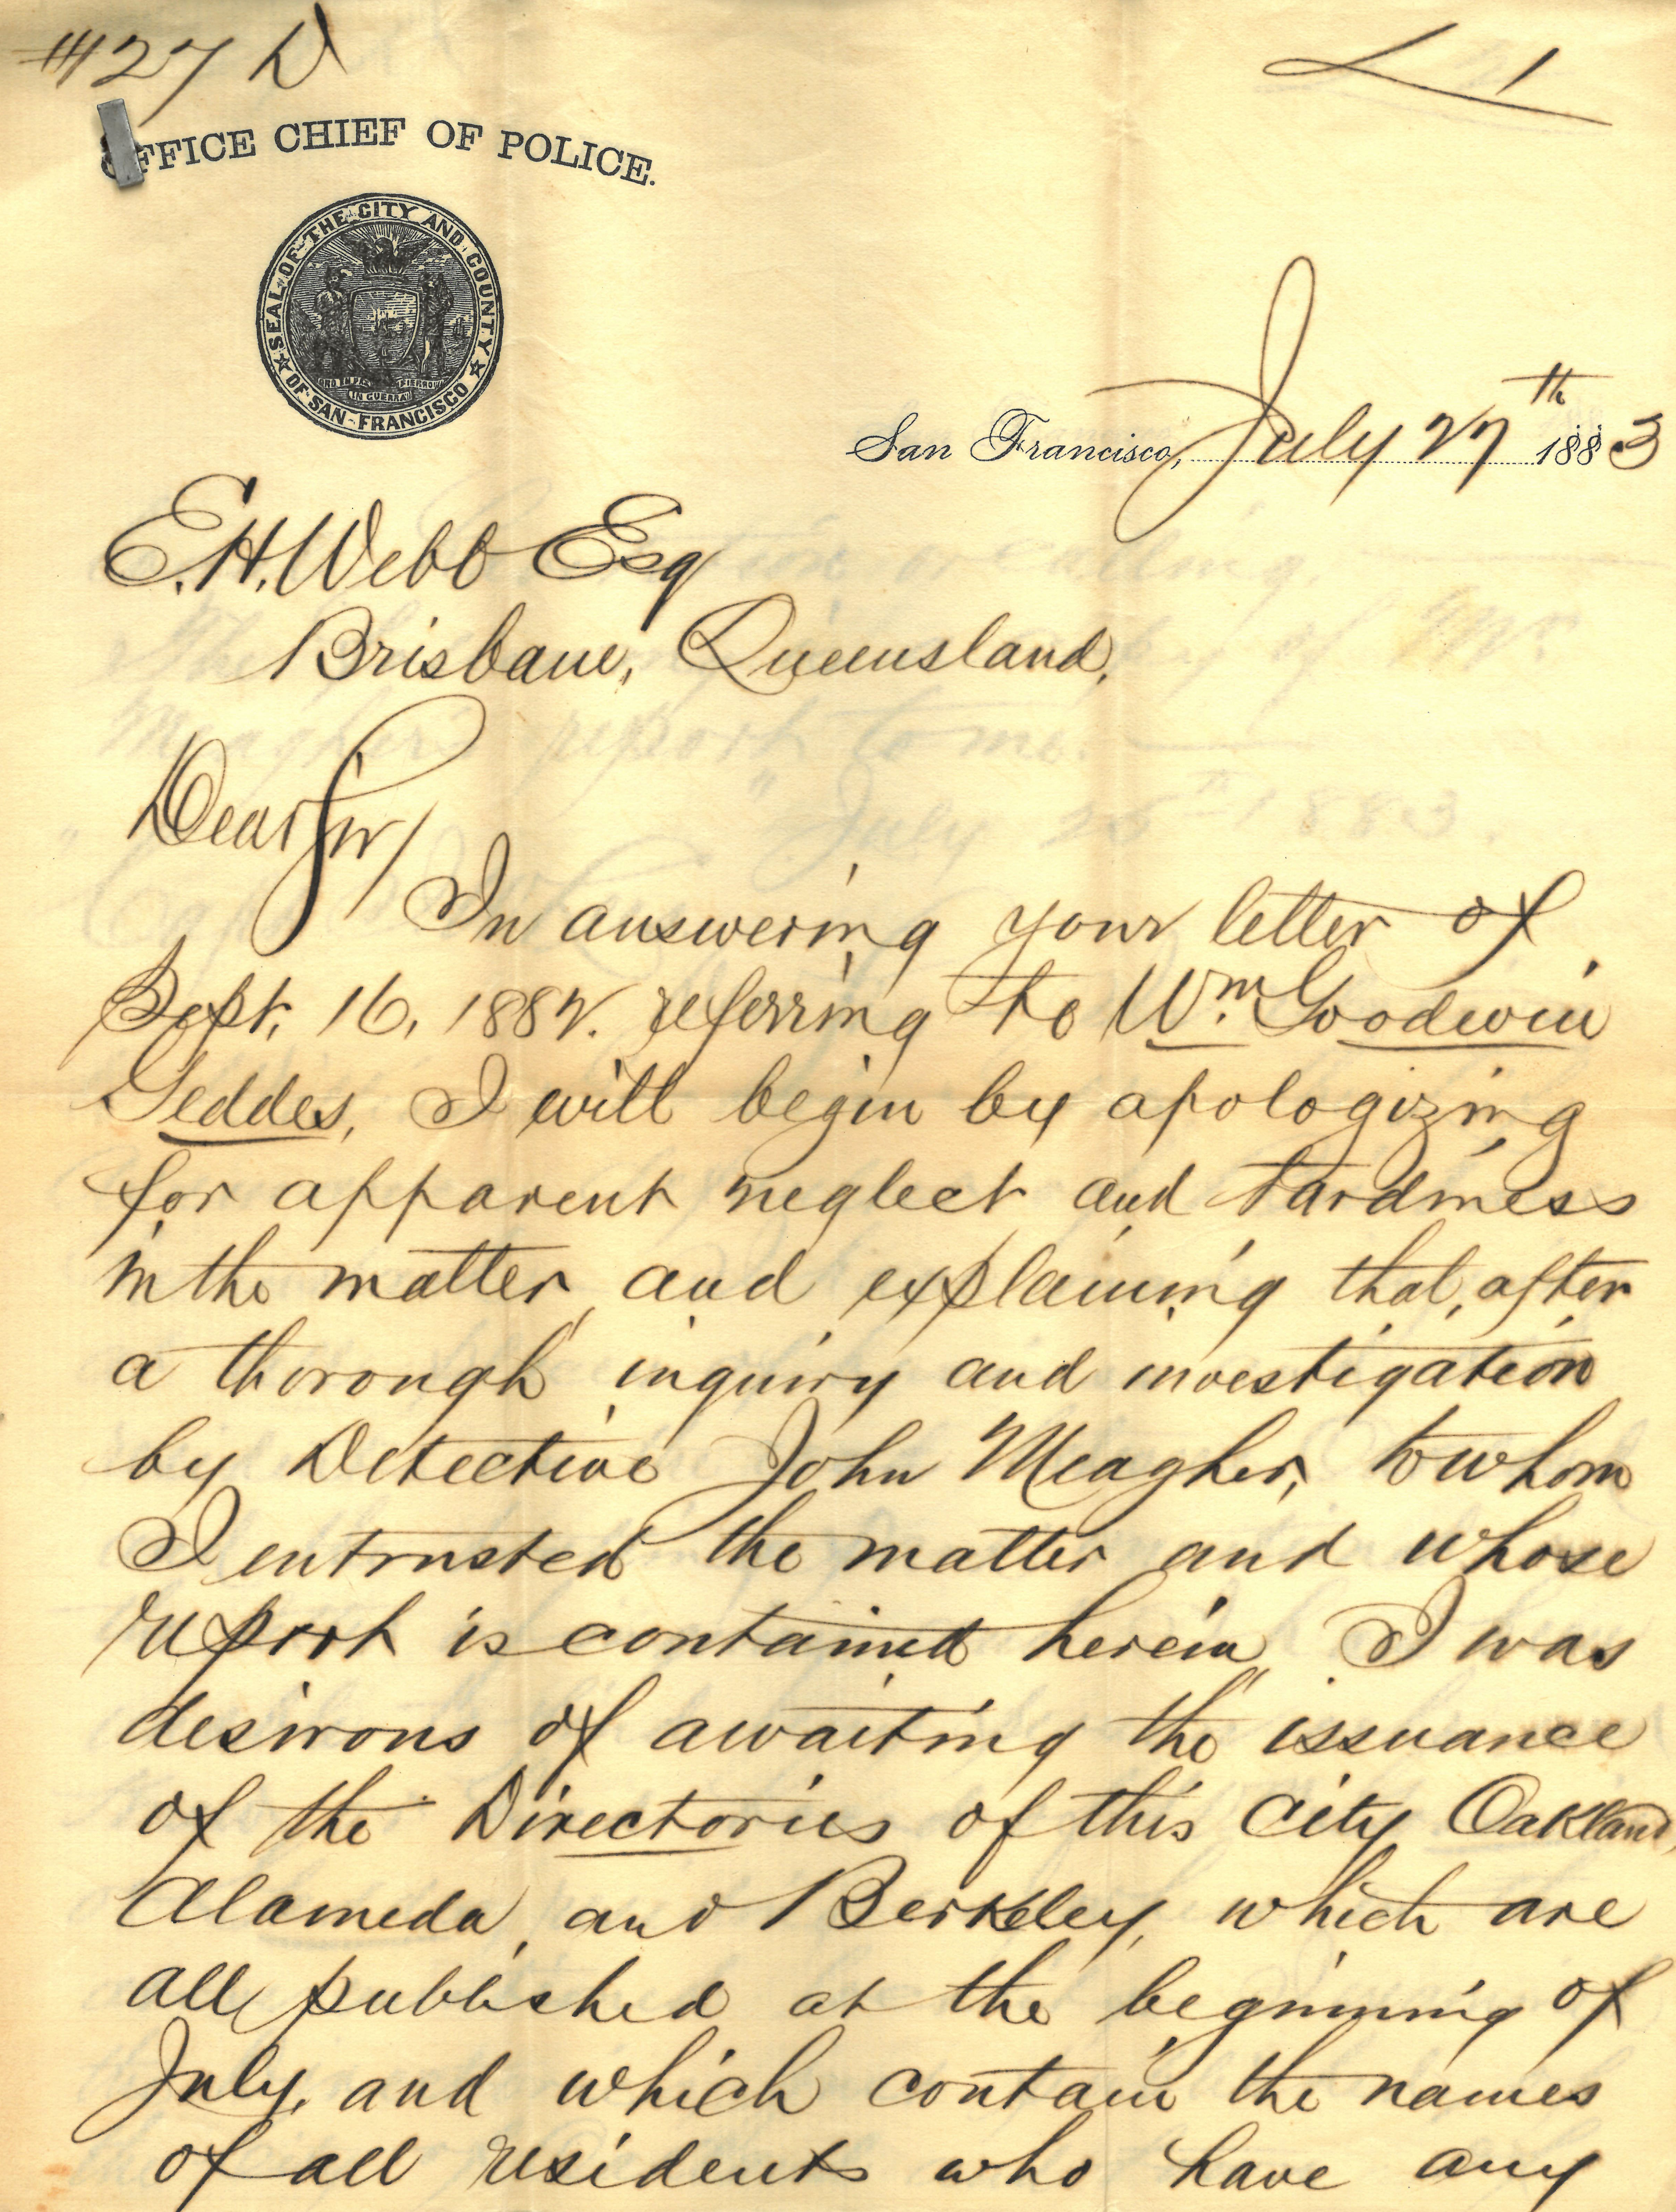 #27 D
1
OFFICE CHIEF OF POLICE.
SEAL OF THE CITY AND COUNTY
OF SAN FRANCISCO
IN GUERRA
San Francisco, July 27th 1883
E. H. Webb Esq
Brisbane, Queensland,
Dear Sir/
In answering your letter of
Sept. 16, 1882. referring to Wm. Goodwin
Geddes, I will begin by apologizing
for apparent neglect and tardiness
in the matter, and explaining that, after
a thorough inquiry and investigation
by Detective John Meagher, to whom
I entrusted the matter and whose
report is contained herein, I was
desirous of awaiting the issuance
of the Directories of this City, Oakland,
Alameda, and Berkeley, which are
all published at the beginning of
July, and which contain the names
of all residents who have any